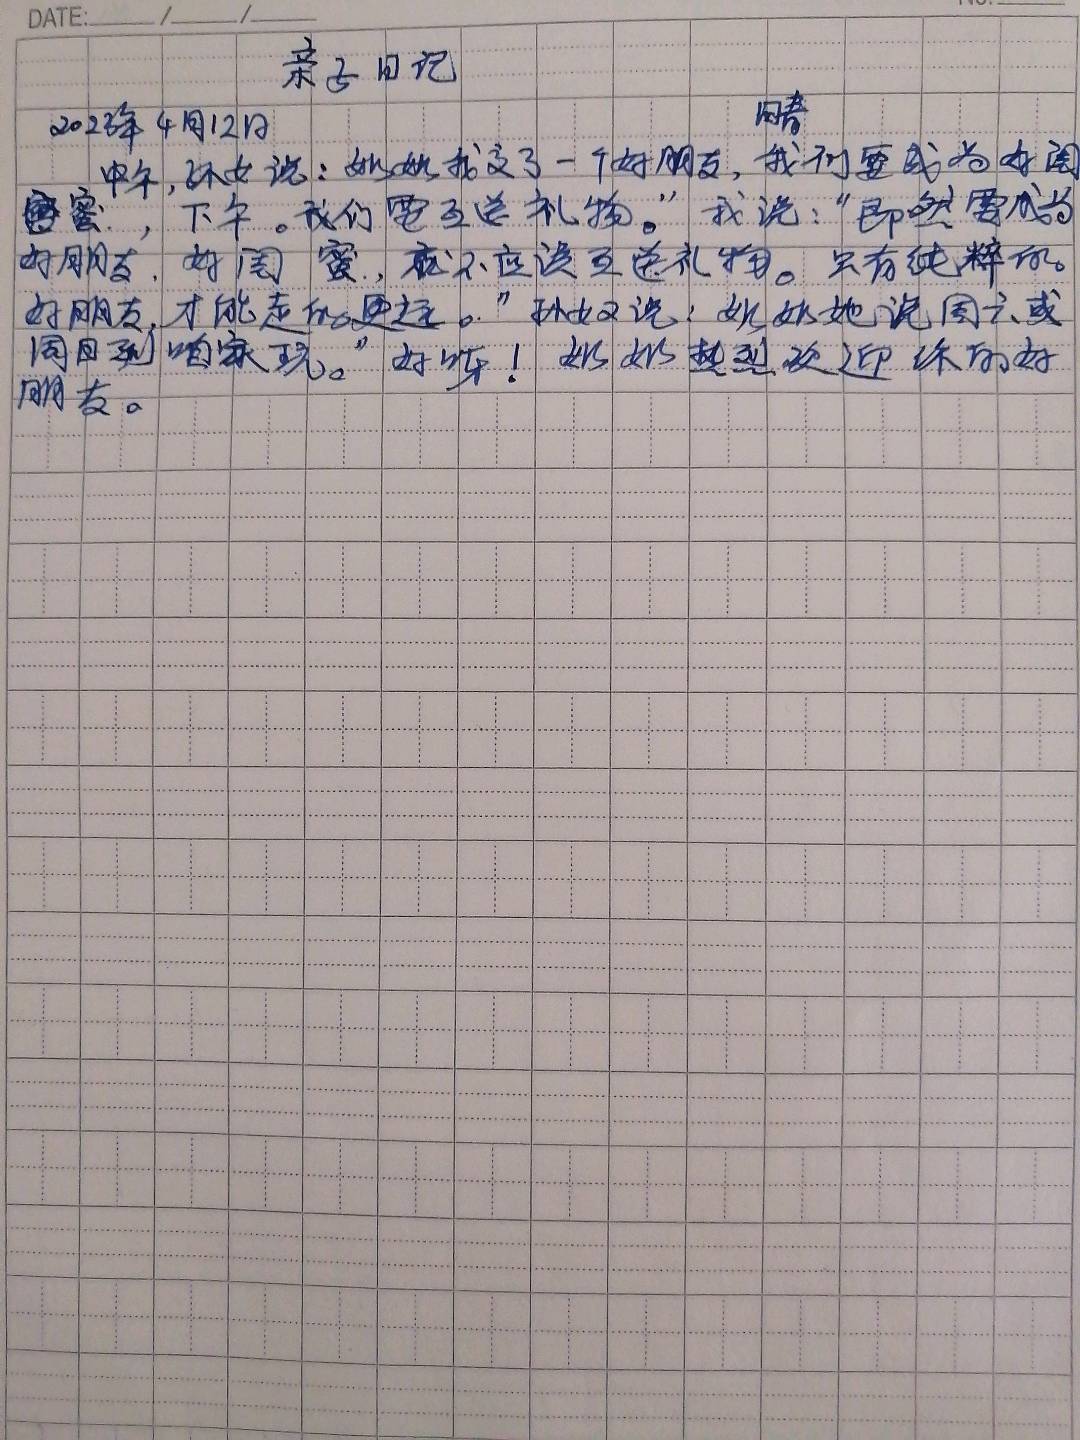 DATE: / / No:
亲子日记
2023年4月12日 晴
中午,孙女说:奶奶我交了一个好朋友,我们要成为好闺
蜜,下午。我们要互送礼物。"我说:"即然要成为
好朋友.好闺蜜,就不应该互送礼物。只有纯粹的
好朋友,才能走的更远。"孙女又说:奶奶她说周六或
周日到咱家玩。"好呀!奶奶热烈欢迎你的好
朋友。